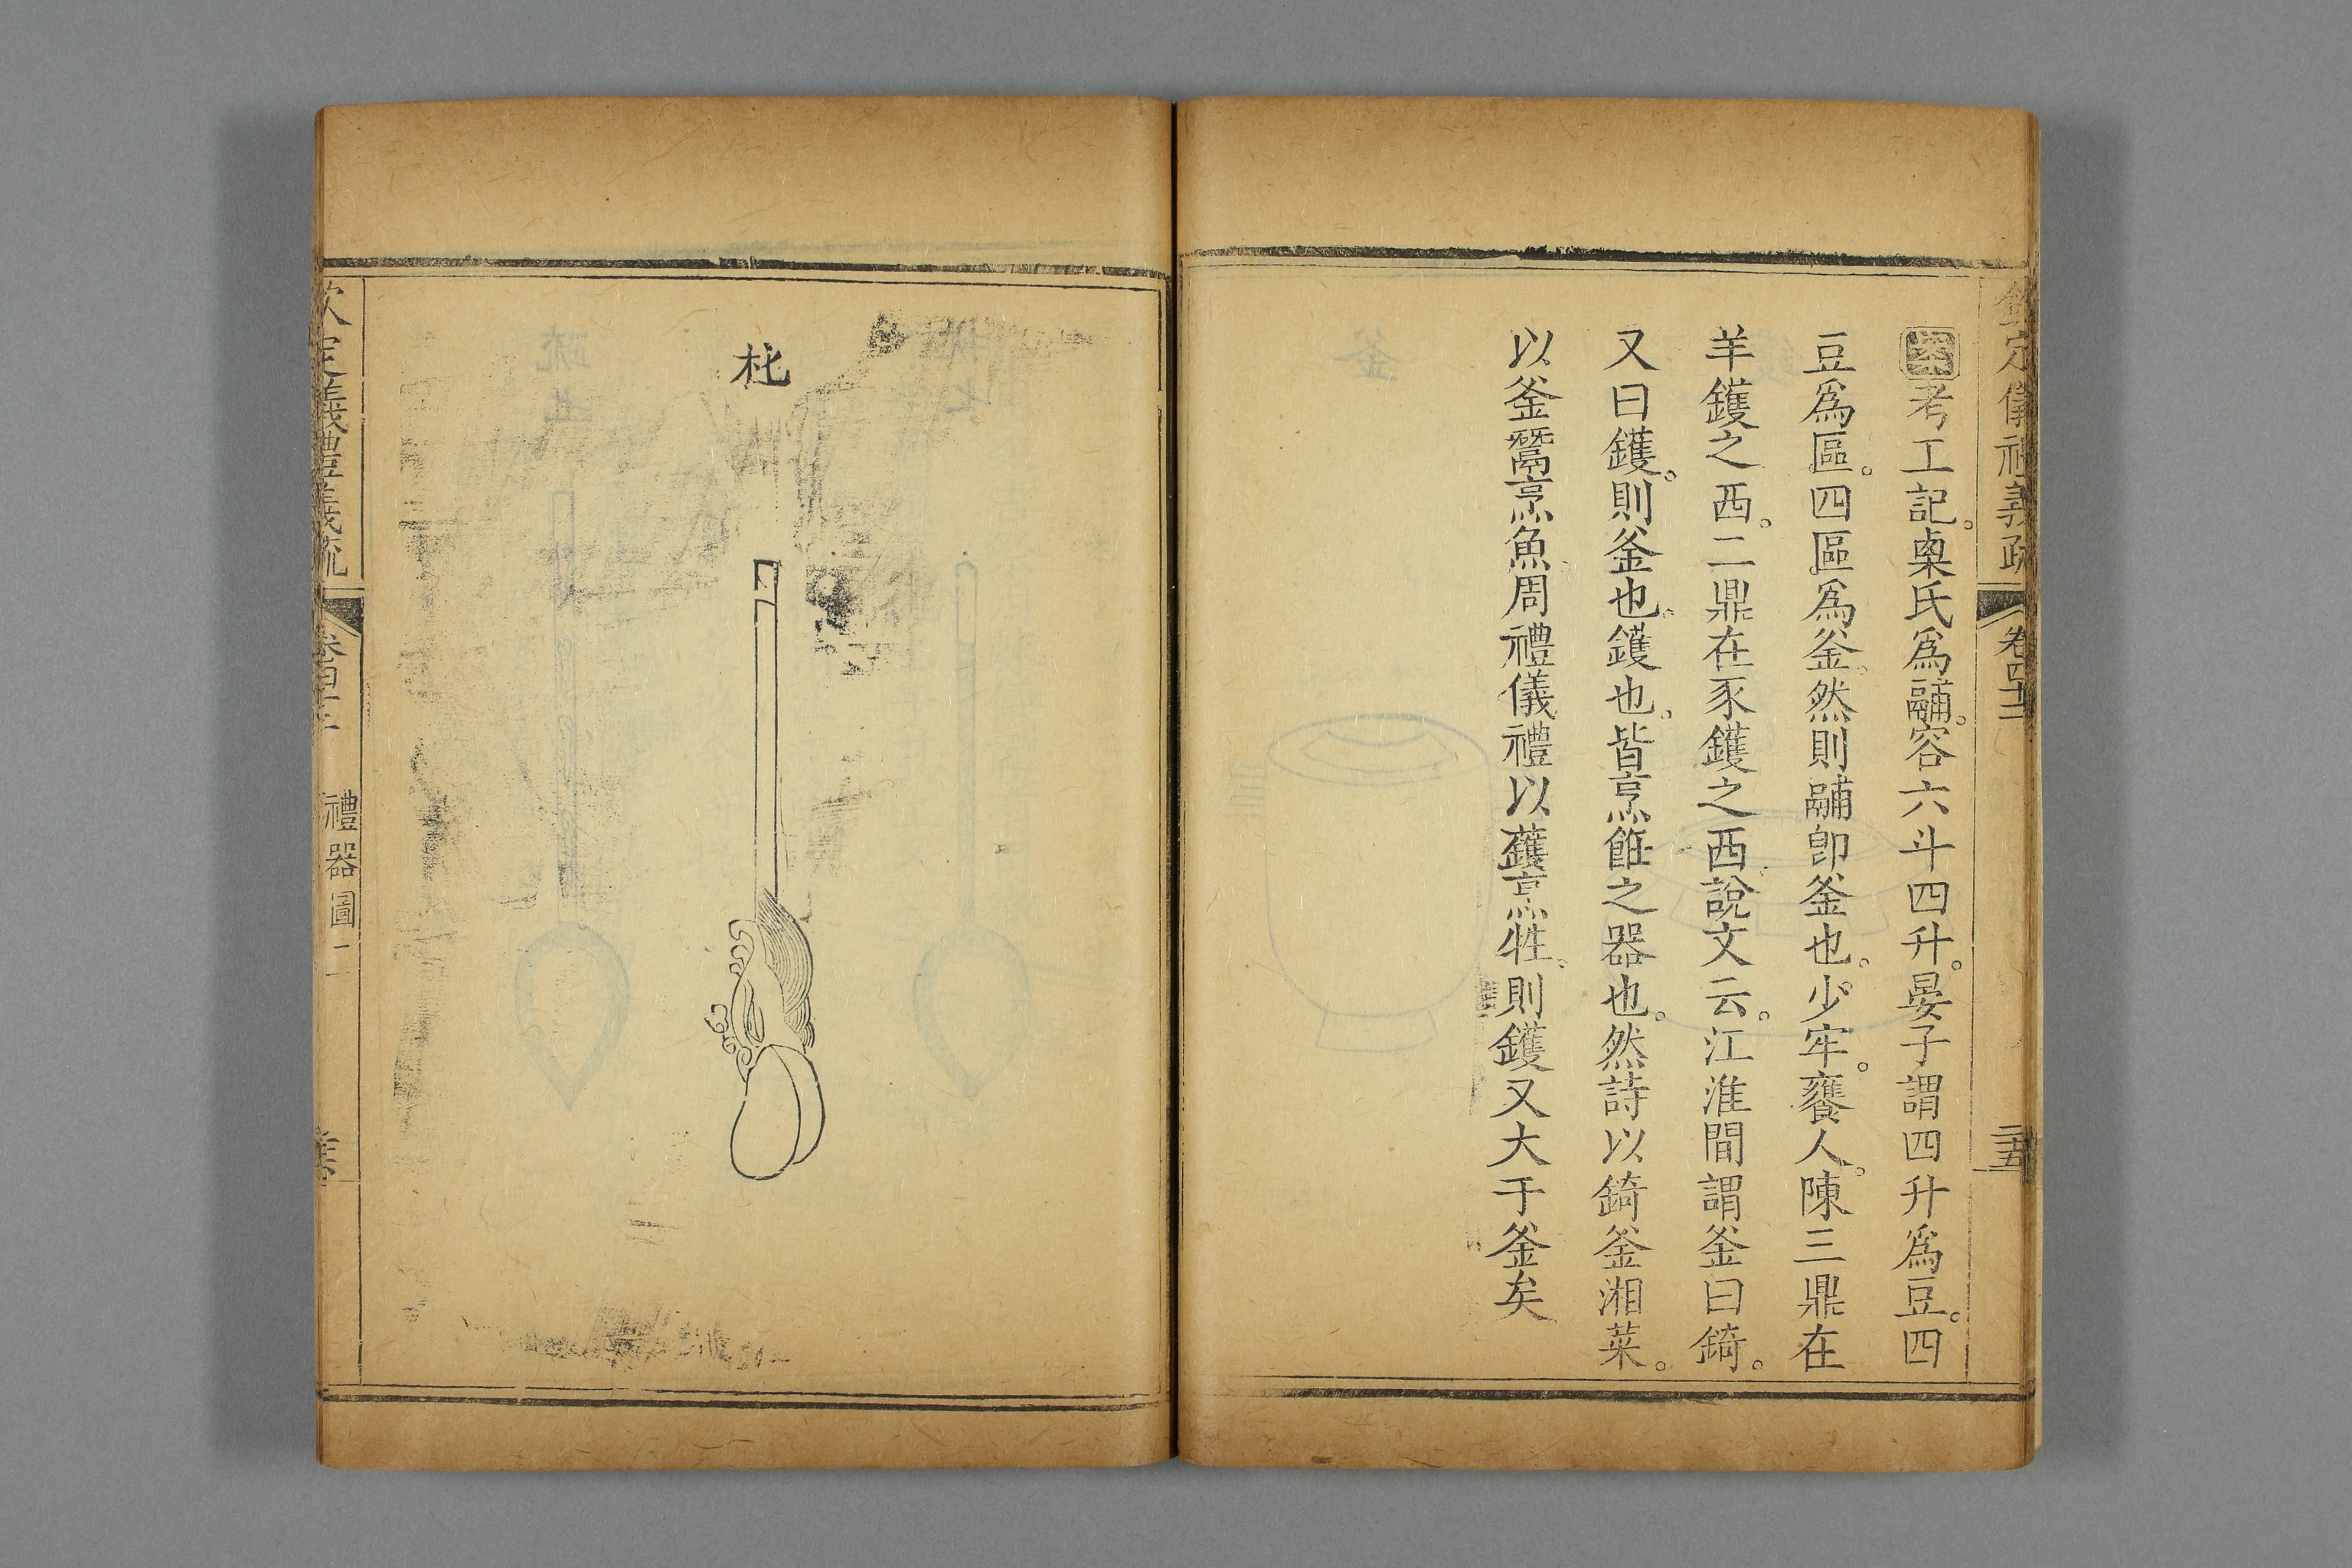 欽定儀禮義疏 卷四十二 二十五
案考工記。㮚氏爲鬴。容六斗四升。晏子謂四升爲豆。四
豆爲區。四區爲釜。然則鬴卽釜也。少牢。饔人。陳三鼎在
羊鑊之西。二鼎在豕鑊之西。說文云。江淮間謂釜曰錡。
又曰鑊。則釜也。鑊也。皆烹飪之器也。然詩以錡釜湘菜。
以釜鬵烹魚。周禮儀禮以鑊烹牲。則鑊又大于釜矣
朼
欽定義禮義疏 禮器圖二